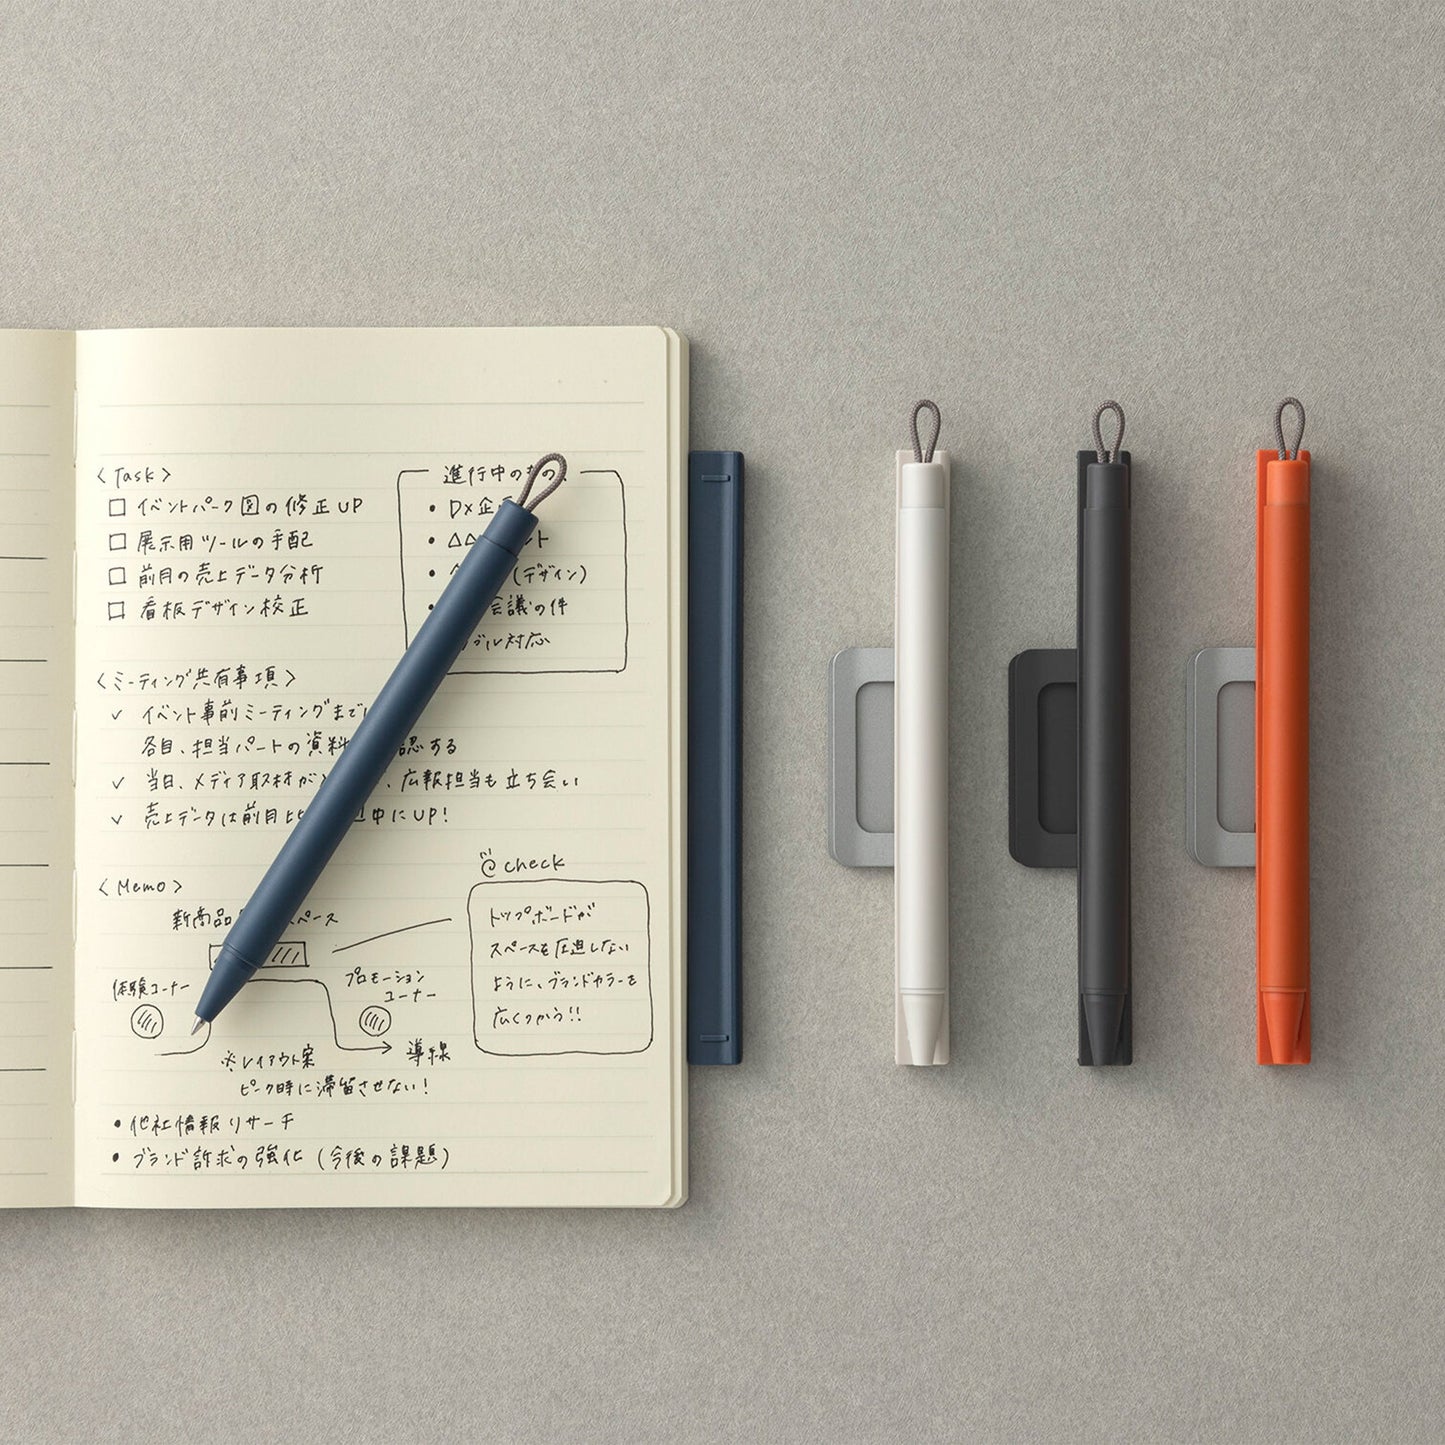 〈Task〉
□ イベントパーク図の修正UP
□ 展示用ツールの手配
□ 前月の売上データ分析
□ 看板デザイン校正
進行中のもの
• DX企
• △△ ント
• (デザイン)
• 会議の件
ブル対応
〈ミーティング共有事項〉
✓ イベント事前ミーティングまでに
各自、担当パートの資料 認する
✓ 当日、メディア取材が 、広報担当も立ち会い
✓ 売上データは前月比 中にUP!
check
〈Memo〉
新商品 スペース
トップボードが
スペースを圧迫しない
ように、ブランドカラーを
広くつかう!!
体験コーナー
プロモーション
コーナー
導線
※レイアウト案
ピーク時に滞留させない!
• 他社情報リサーチ
• ブランド訴求の強化(今後の課題)